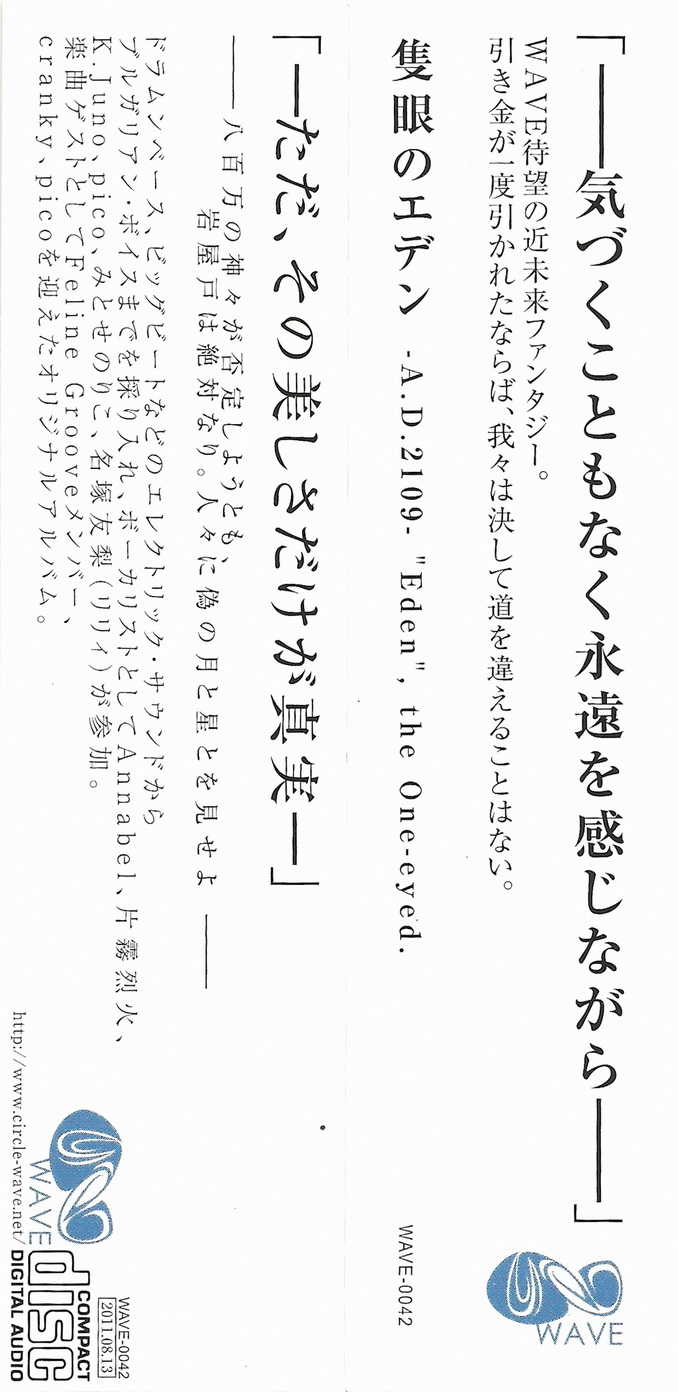 「――気づくこともなく永遠を感じながら――」
WAVE待望の近未来ファンタジー。
引き金が一度引かれたならば、我々は決して道を違えることはない。
隻眼のエデン -A.D.2109- "Eden", the One-eyed.
WAVE-0042
WAVE
「―ただ、その美しさだけが真実―」
――八百万の神々が否定しようとも、
岩屋戸は絶対なり。人々に偽の月と星とを見せよ――
ドラムンベース、ビッグビートなどのエレクトリック・サウンドから
ブルガリアン・ボイスまでを採り入れ、ボーカリストとしてAnnabel、片霧烈火、
K.Juno、pico、みとせのりこ、名塚友梨(リリィ)が参加。
楽曲ゲストとしてFeline Grooveメンバー、
cranky、picoを迎えたオリジナルアルバム。
http://www.circle-wave.net/
WAVE
WAVE-0042
2011.08.13
COMPACT
disc
DIGITAL AUDIO